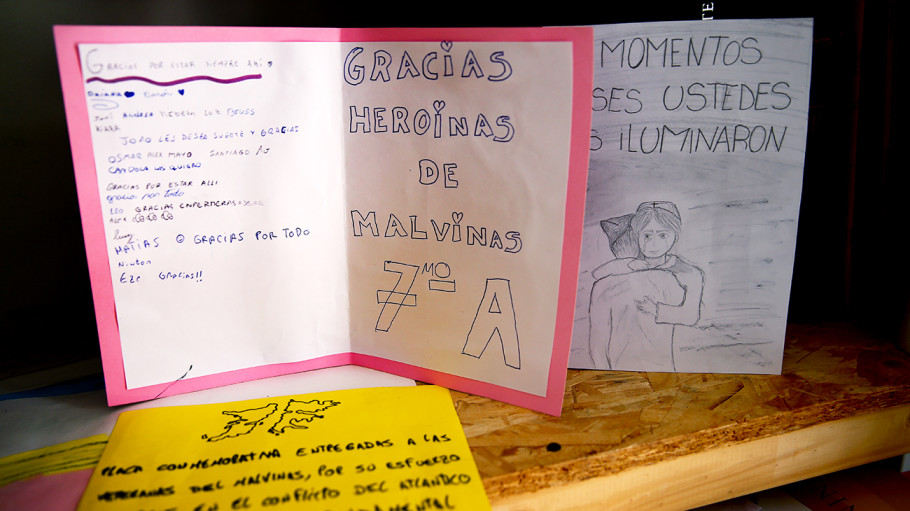 GRACIAS POR ESTAR SIEMPRE AHÍ
ANDREA
JORO LES DESEA SUERTE Y GRACIAS
OSMAR ALEX MAYO SANTIAGO AJ
CANDELA LOS QUIERO
GRACIAS POR ESTAR ALLI
gracias por todo
LEO GRACIAS ENFERMERAS
ALEX
MATIAS GRACIAS POR TODO
Newton
Eze GRACIAS!!
GRACIAS
HEROÍNAS
DE
MALVINAS
7MO A
MOMENTOS
SES USTEDES
S ILUMINARON
TE
PLACA CONMEMORATIVA ENTREGADAS A LAS
VETERANAS DEL MALVINAS, POR SU ESFUERZO
EN EL CONFLICTO DEL ATLANTICO